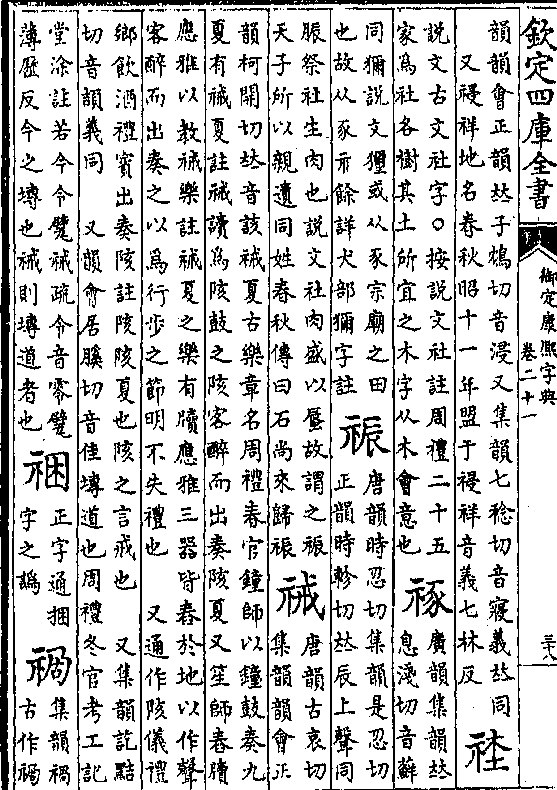 欽定四庫全書
御定康熙字典
卷二十一
三十八
韻韻會正韻𠀤子鴆切音浸又集韻七稔切音寢義𠀤同
又祲祥地名春秋昭十一年盟于祲祥音義七林反
𥙭
説文古文社字○按説文社註周禮二十五
家爲社各樹其土所宜之木字从木會意也
禒
廣韻集韻𠀤
息淺切音蘚
同獮説文或从豕宗廟之田
也故从豕示餘詳犬部獮字註
祳
唐韻時忍切集韻是忍切
正韻時軫切𠀤辰上聲同
脤祭社生肉也説文社肉盛以蜃故謂之祳
天子所以親遺同姓春秋傳曰石尚來歸祳
祴
唐韻古哀切
集韻韻會正
韻柯開切𠀤音該祴夏古樂章名周禮春官鐘師以鐘鼓奏九
夏有祴夏註祴讀爲陔鼓之陔客醉而出奏陔夏又笙師舂牘
應雅以教祴樂註祴夏之樂有牘應雅三器皆舂於地以作聲
客醉而出奏之以爲行步之節明不失禮也 又通作陔儀禮
鄉飲酒禮賓出奏陔註陔陔夏也陔之言戒也 又集韻訖黠
切音韻義同 又韻會居膎切音佳塼道也周禮冬官考工記
堂涂註若今令甓祴疏令音零甓
薄歷反今之塼也祴則塼道者也
祵
正字通捆
字之譌
集韻禍
古作